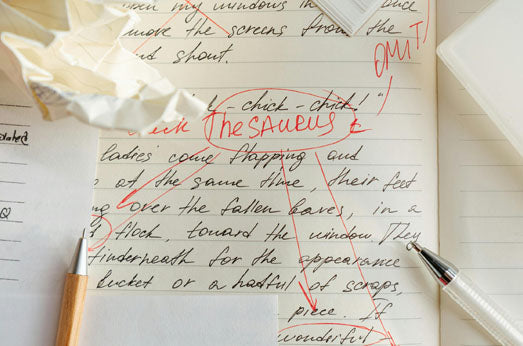 open my windows in once
move the screens from the
shout.
OMIT
-chick-chick!"
THESAURUS
ladies come flapping and
at the same time, their feet
over the fallen leaves, in a
flock, toward the window. They
underneath for the appearance
bucket or a hatful of scraps,
piece. If
wonderful